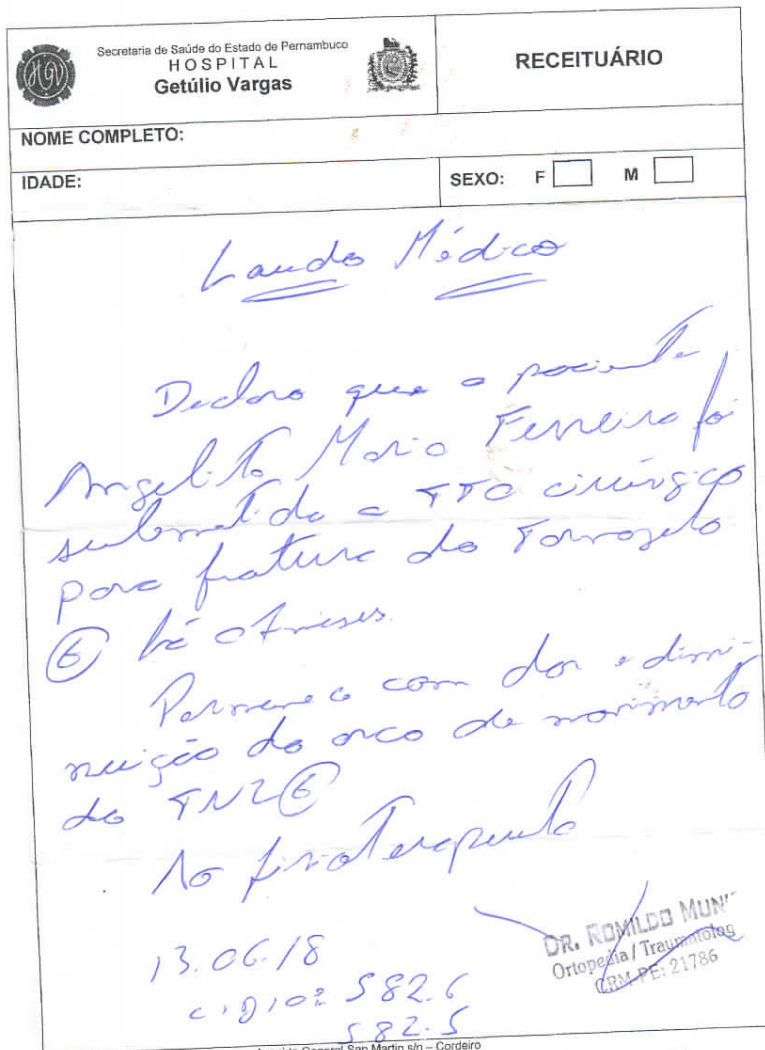 Secretaria de Saúde do Estado de Pernambuco
HOSPITAL
Getúlio Vargas
RECEITUÁRIO
NOME COMPLETO:
IDADE:
SEXO: F M
Laudo Médico
Declaro que a paciente
Angelita Maria Ferreira foi
submetida a TTO cirúrgico
para fratura do Tornozelo
(E) há meses.
Permanece com dor e dimi-
nuição do arco de movimento
do TNZ (E)
Ao fisioterapeuta
13.06.18
CID10: S82.6
S82.5
DR. ROMILDO MUN
Ortopedia / Traumatolog
CRM-PE: 21786
General San Martin s/n – Cordeiro